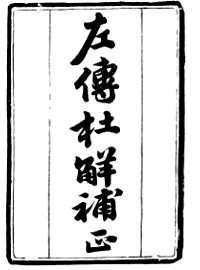 左傳杜解補正